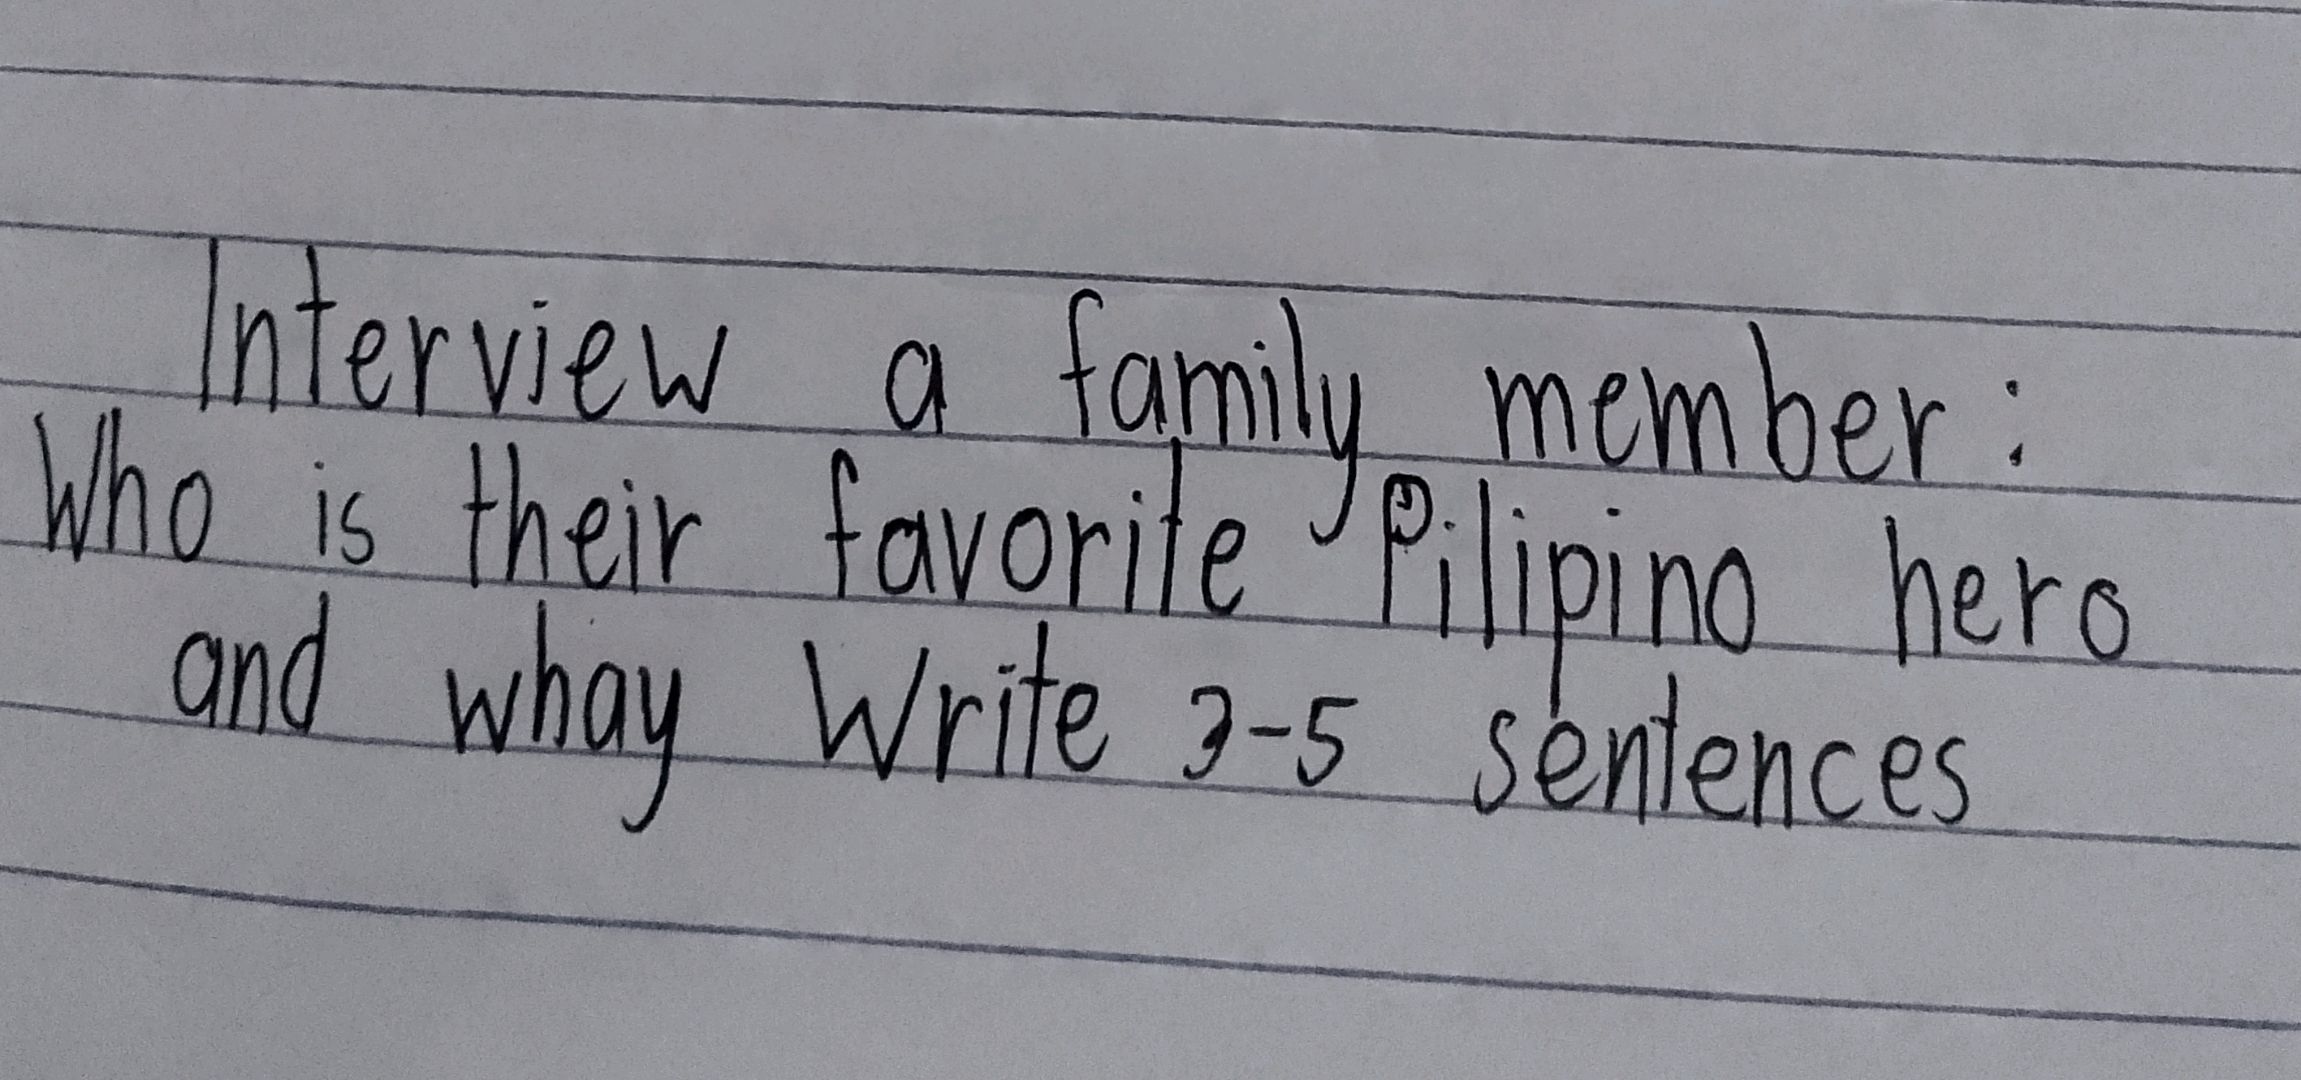 Interview a family member:
Who is their favorite Pilipino hero
and whay Write 3-5 sentences